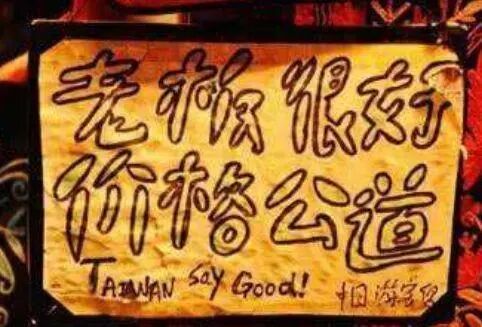 老板很好
价格公道
TAIWAN Say GOOD!
中国游客仅